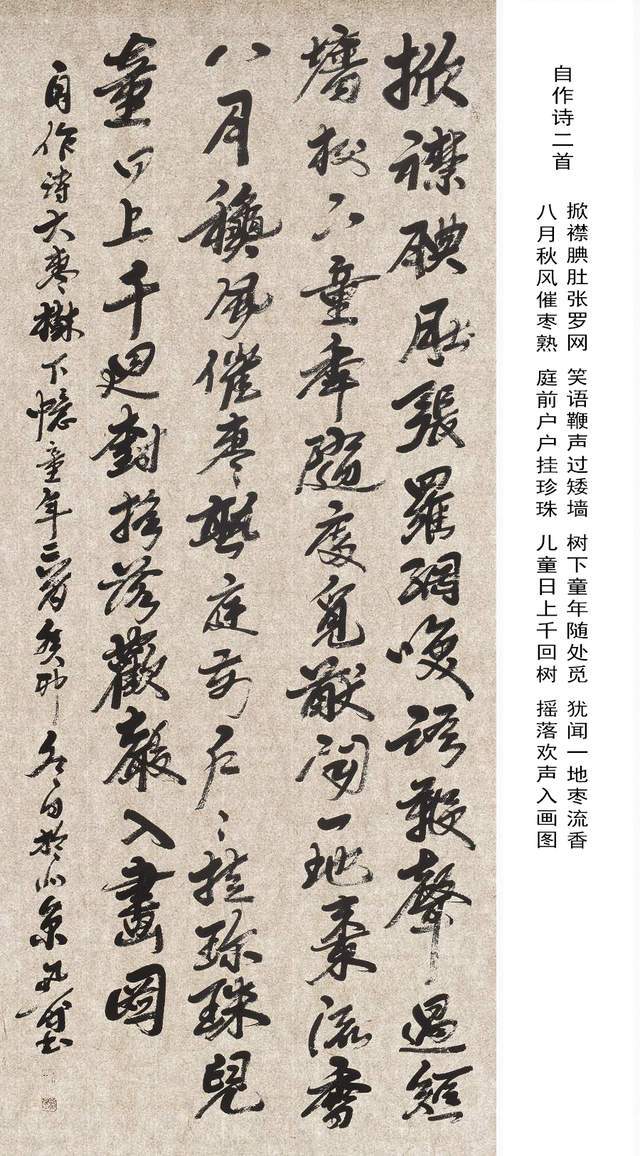 自作诗二首
掀襟腆肚张罗网 笑语鞭声过矮墙 树下童年随处觅 犹闻一地枣流香
八月秋风催枣熟 庭前户户挂珍珠 儿童日上千回树 摇落欢声入画图
掀襟腆肚張羅網咲語鞭聲過矮
墻樹下童年隨處覓猷聞一地棗流香
八月穐風催棗熟庭前户〻挂珍珠兒
童日上千迴樹摇落歡聲入畫圖
自作诗大棗樹下憶童年二首癸卯冬日於北京